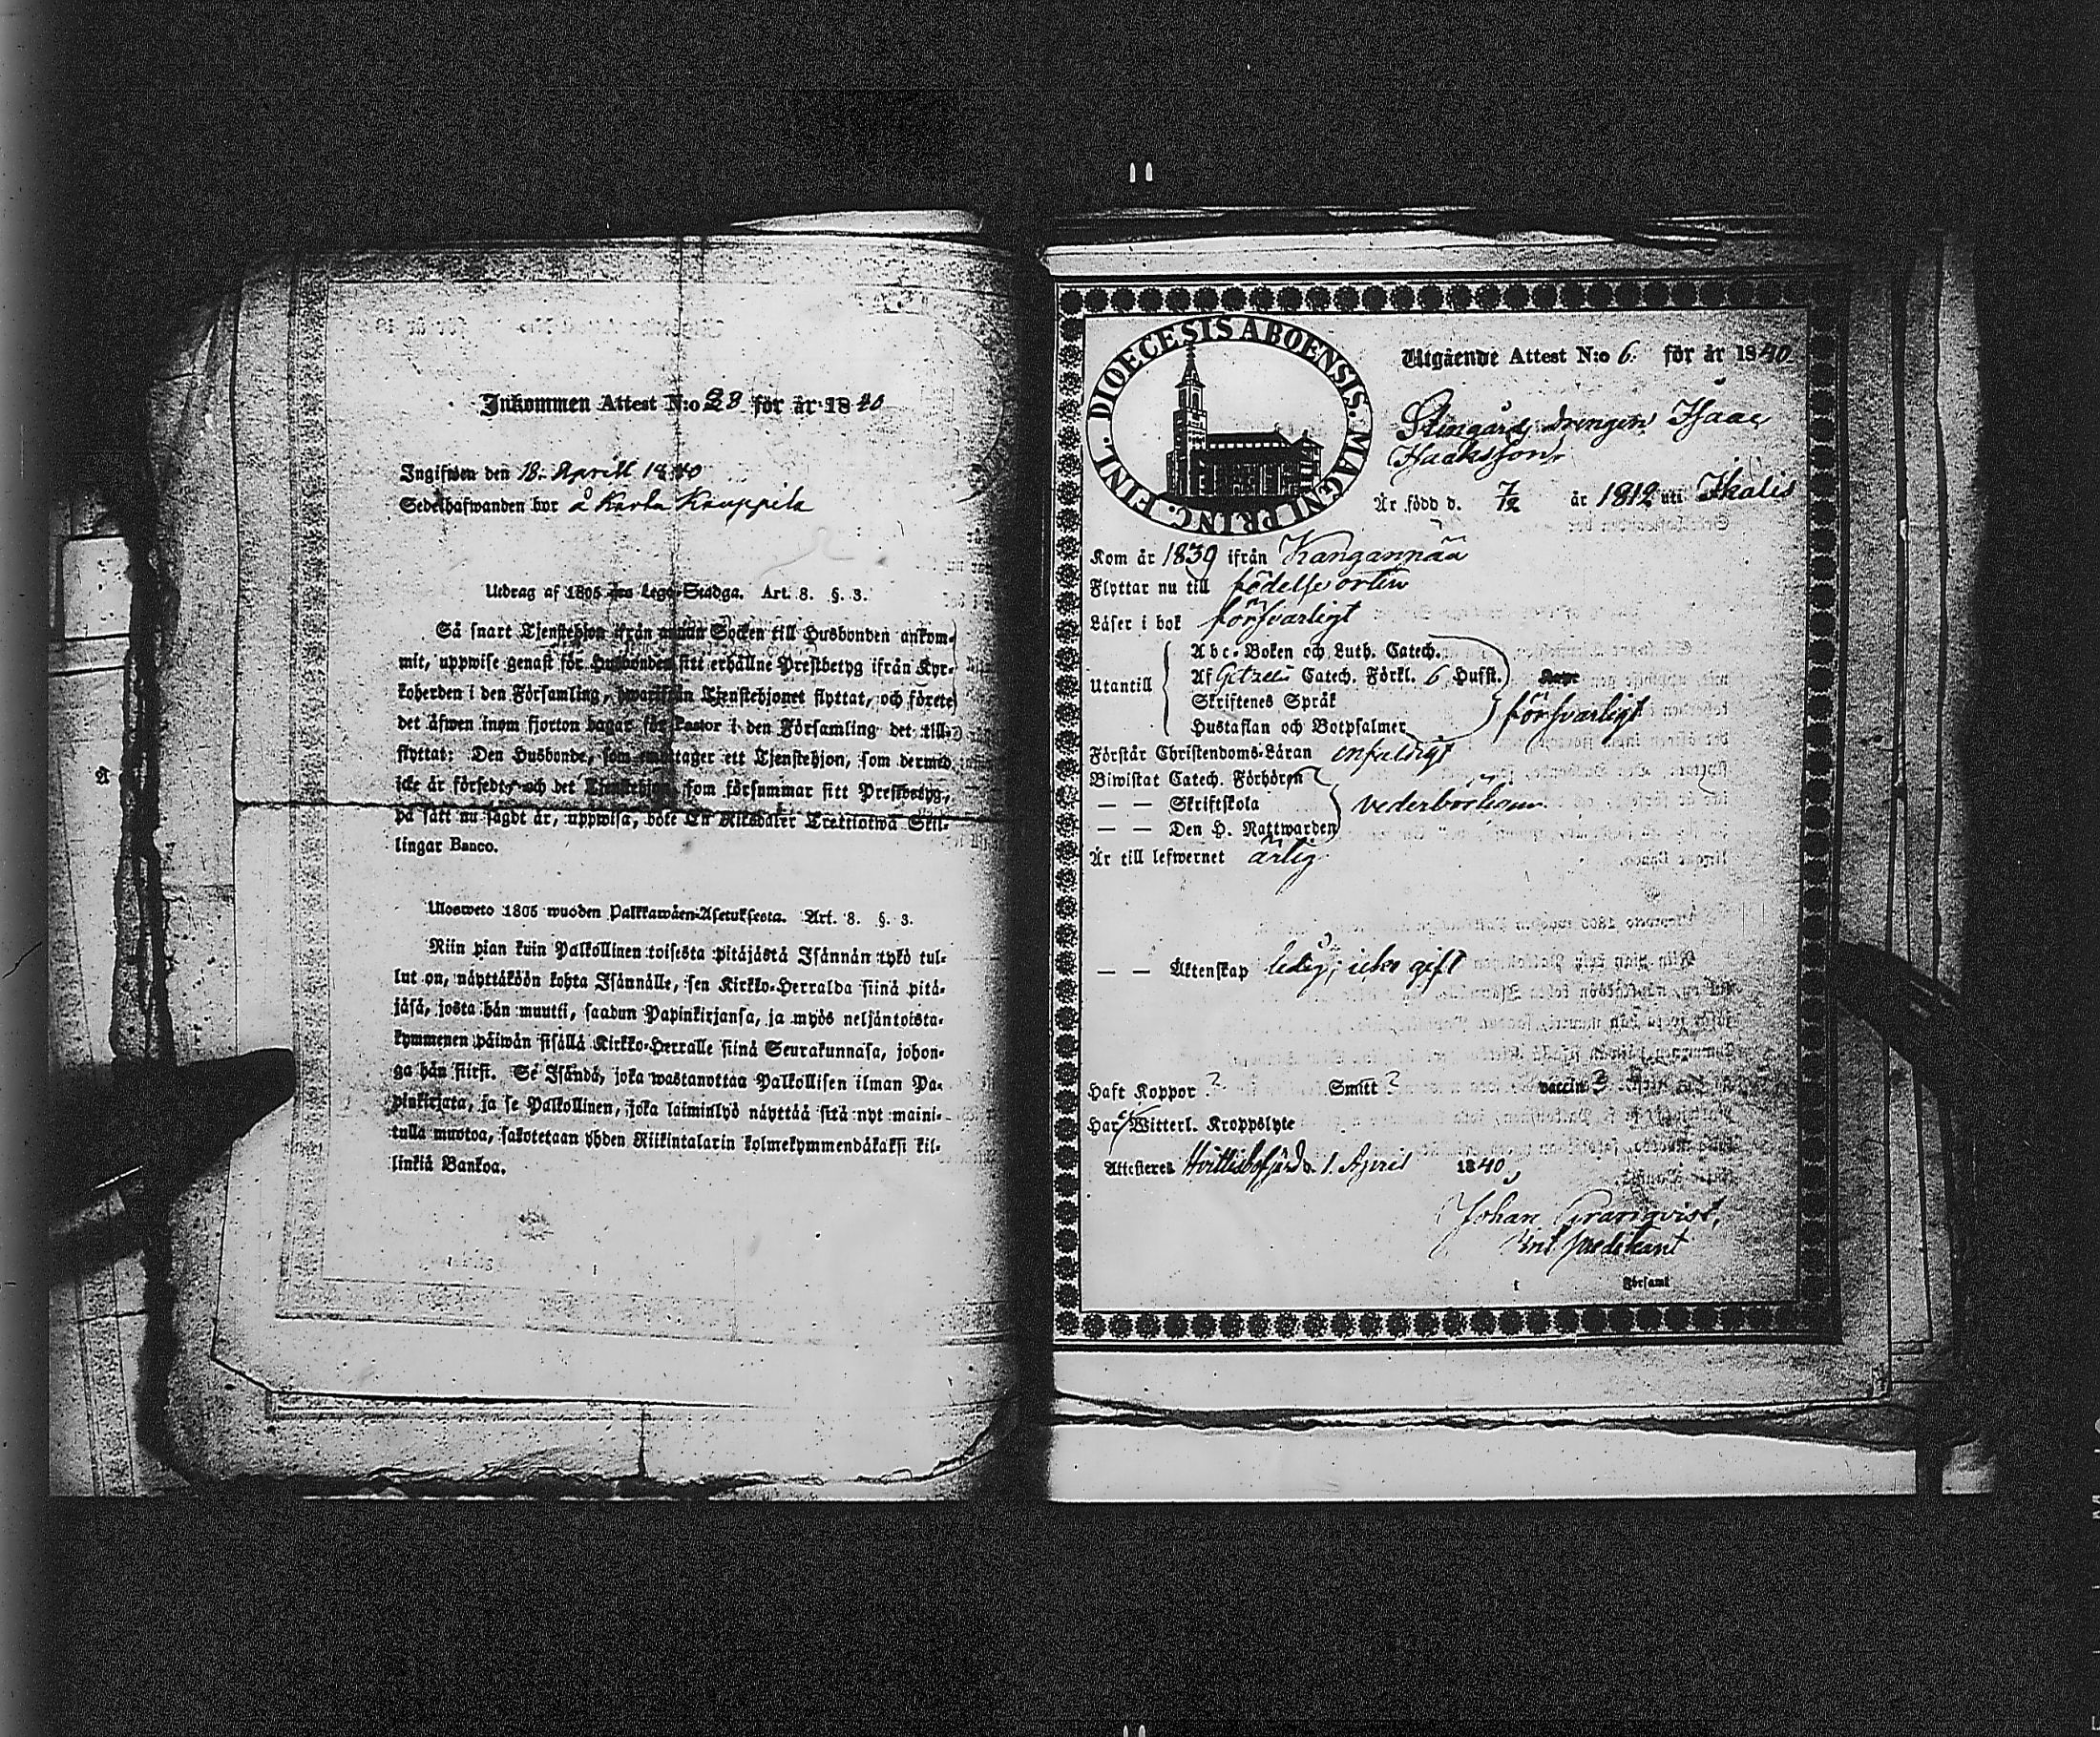 Inkommen Attest N:o 28 för år 1840
Ingifwen den 18. Aprill 1840
Sedelhafwanden bor å Karta Kauppila
Utdrag af 1805 års Lego-Stadga. Art. 8. §. 3.
Så snart Tjenstehjon ifrån annan Socken till Husbonden ankom-
mit, uppwise genast för Husbonden sitt erhållne Prestbetyg ifrån Kyr-
koherden i den Församling, hwarifrån Tjenstehjonet flyttat, och förete
det äfwen inom fjorton dagar för Pastor i den Församling det till-
flyttat: Den Husbonde, som emottager ett Tjenstehjon, som dermed
icke är försedt, och det Tjenstehjon som försummar sitt Prestbetyg,
på sätt nu sagdt är, uppwisa, böte En Riksdaler Trettiotwå Skil-
lingar Banco.
Ulosweto 1805 wuoden Palkkawäen-Asetuksesta. Art. 8. §. 3.
Niin pian kuin Palkollinen toisesta pitäjästä Isännän tykö tul-
lut on, näyttäköön kohta Isännälle, sen Kirkko-Herralda siinä pitä-
jäsä, josta hän muutti, saadun Papinkirjansa, ja myös neljäntoista-
kymmenen päiwän sisällä Kirkko-Herralle siinä Seurakunnasa, johon-
ga hän siirsi. Se Isändä, joka wastanottaa Palkollisen ilman Pa-
pinkirjata, ja se Palkollinen, joka laiminlyö näyttää sitä nyt maini-
tulla muotoa, sakotetaan yhden Riikintalarin kolmekymmendäkaksi kil-
linkiä Bankoa.
FINL. DIOECESIS ABOENSIS. MAGNI PRINC.
Utgående Attest N:o 6. för år 1840.
Stengårds drengen Isaac
Isacksson
Är född d. 7/2 år 1812 uti Ikalis
Kom år 1839 ifrån Kangannpää
Flyttar nu till födelse orten
Läser i bok försvarligt
Abc-Boken och Luth. Catech.
Utantill Af Getzelii Catech. Förkl. 6 Hufst.
Skriftenes Språk försvarligt
Hustaflan och Botpsalmer
Förstår Christendoms-Läran enfaldigt
Biwistat Catech. Förhören
— — Skriftskola vederbörligen
— — Den H. Nattwarden
Är till lefwernet ärlig
— — Äktenskap ledig, icke gift
Haft Koppor ? Smitt ? vaccin ?
Har Witterl. Kroppslyte
Attesteres Hvittisbofjärd d. 1. April 1840,
Johan Granqvist,
Predikant
Församl